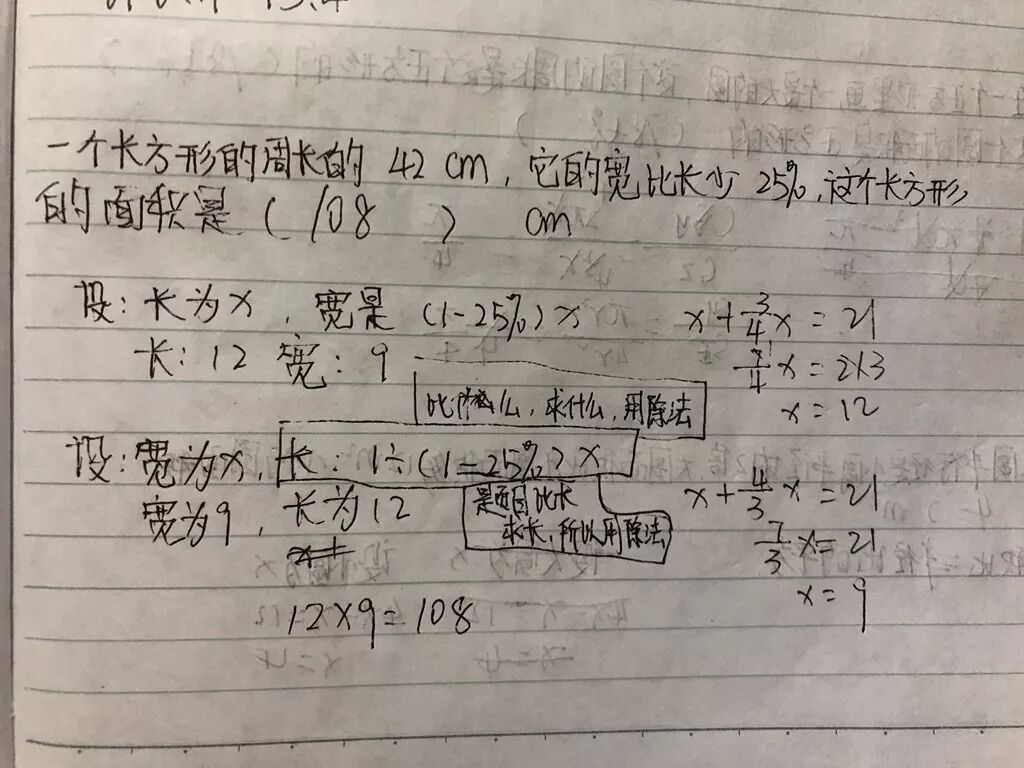 一个长方形的周长的 42 cm，它的宽比长少 25%，这个长方形
的面积是（ 108 ） cm
设：长为x，宽是 (1-25%) x
x + 3/4 x = 21
长：12 宽：9
7/4 x = 21
比什么，求什么，用除法
x = 12
设：宽为x，长：1÷(1-25%) x
是因比长
x + 4/3 x = 21
宽为9，长为12
求长，所以用除法
7/3 x = 21
x = 9
12×9=108